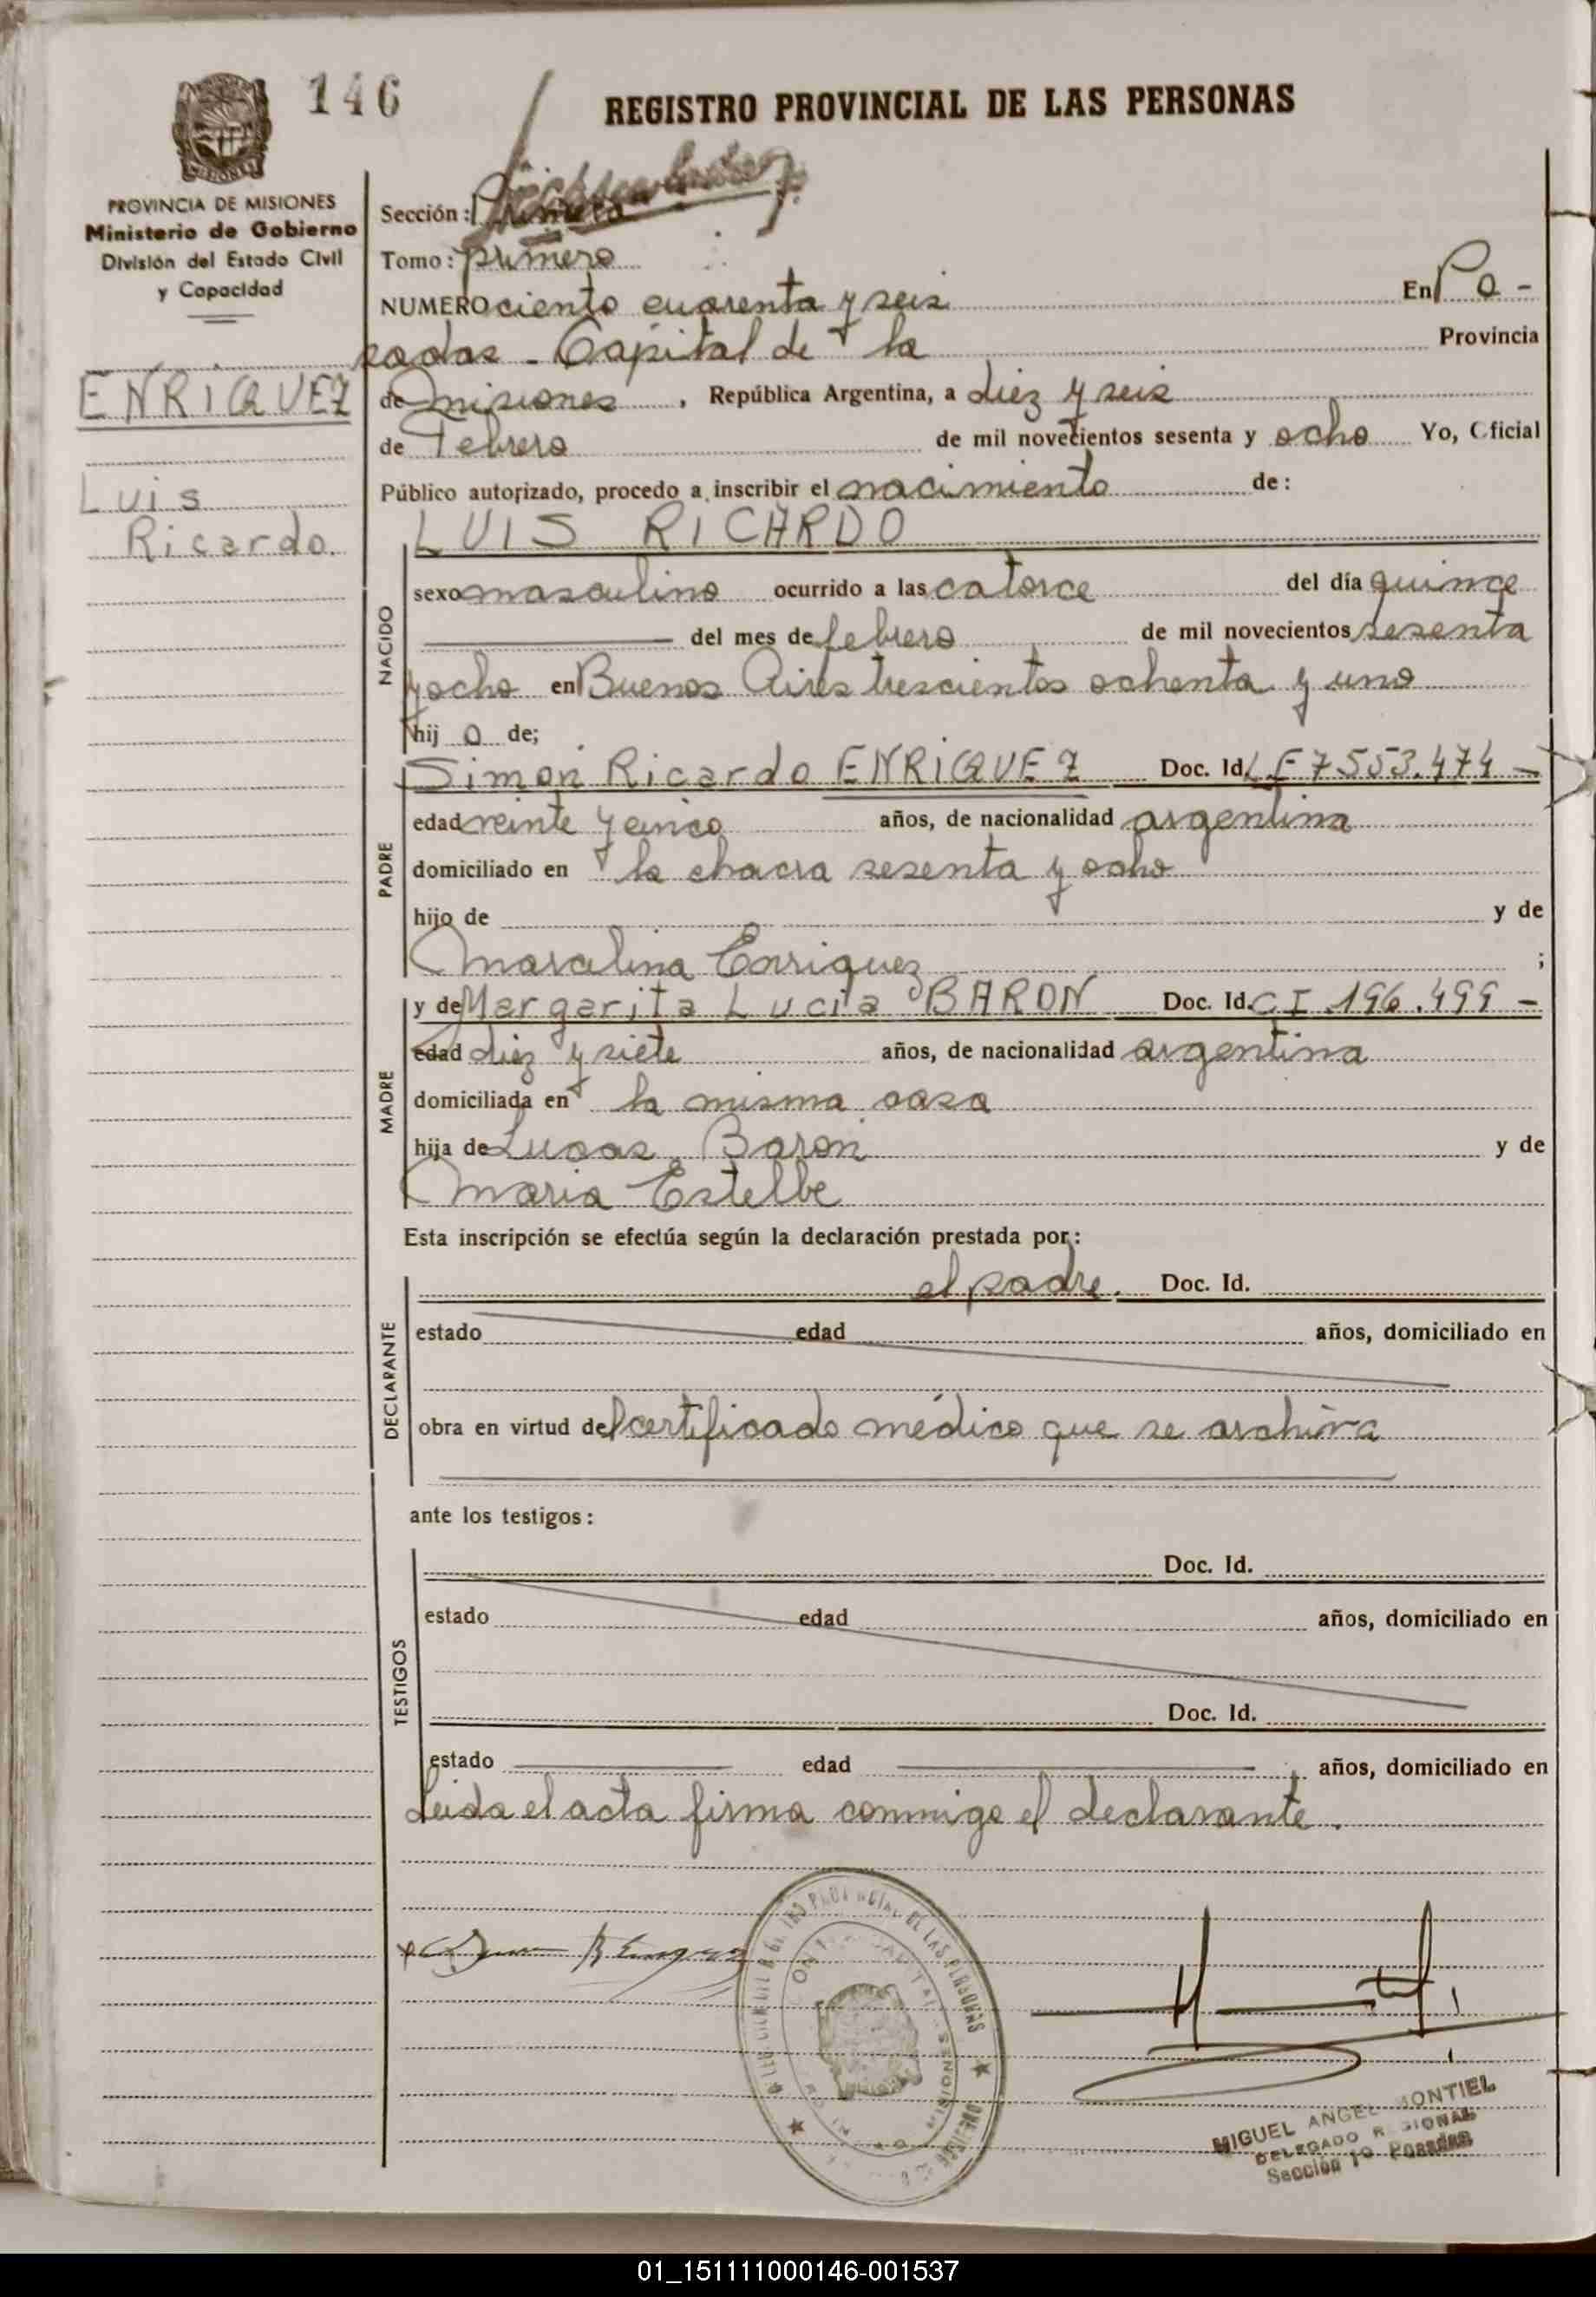 146
REGISTRO PROVINCIAL DE LAS PERSONAS
MISIONES
PROVINCIA DE MISIONES
Ministerio de Gobierno
División del Estado Civil
y Capacidad
ENRIQUEZ
Luis
Ricardo.
Sección: Primera
Tomo: primero
NUMERO ciento cuarenta y seis En Po-
sadas - Capital de la Provincia
de Misiones, República Argentina, a diez y seis
de Febrero de mil novecientos sesenta y ocho Yo, Oficial
Público autorizado, procedo a inscribir el nacimiento de:
LUIS RICARDO
NACIDO
sexo masculino ocurrido a las catorce del día quince
del mes de febrero de mil novecientos sesenta
y ocho en Buenos Aires trescientos ochenta y uno
hijo de;
PADRE
Simon Ricardo ENRIQUEZ Doc. Id. LE 7553.474 -
edad veinte y cinco años, de nacionalidad argentina
domiciliado en la chacra sesenta y ocho
hijo de y de
Marcelina Enriquez ;
MADRE
y de Margarita Lucia BARON Doc. Id. CI 196.499 -
edad diez y siete años, de nacionalidad argentina
domiciliada en la misma casa
hija de Lucas Baron y de
Maria Estelbe
Esta inscripción se efectúa según la declaración prestada por:
DECLARANTE
el padre. Doc. Id.
estado edad años, domiciliado en
obra en virtud del certificado médico que se archiva
ante los testigos:
TESTIGOS
Doc. Id.
estado edad años, domiciliado en
Doc. Id.
estado edad años, domiciliado en
Leida el acta firma conmigo el declarante.
DE LAS PERSONAS
MIGUEL ANGEL MONTIEL
DELEGADO REGIONAL
Sección 1º Posadas
01_151111000146-001537